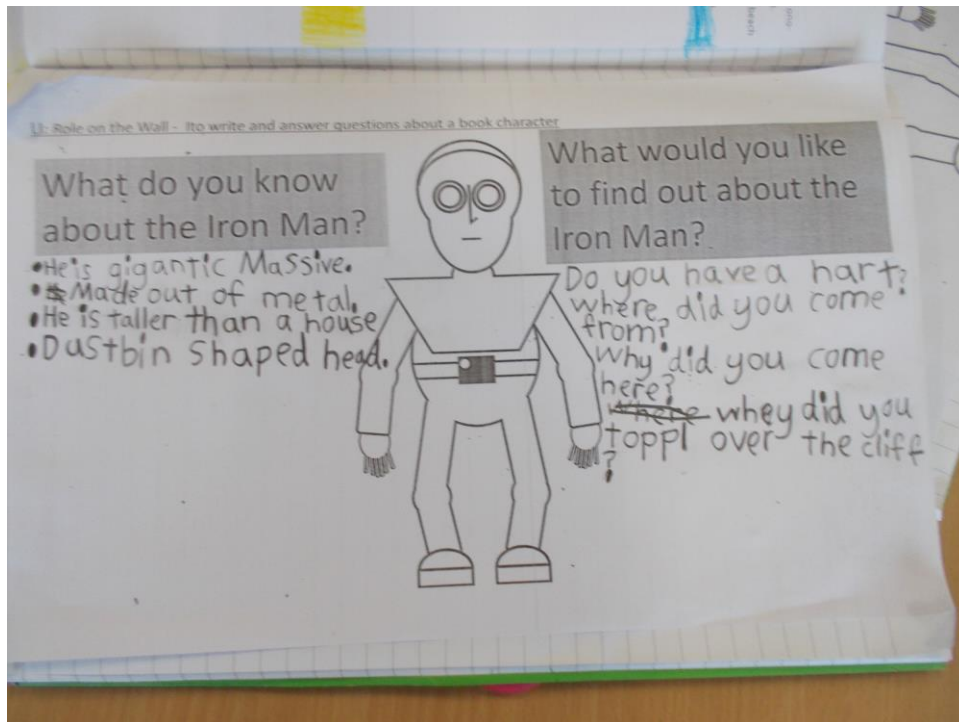 LI: Role on the Wall - Ito write and answer questions about a book character
What do you know
about the Iron Man?
•He is gigantic Massive.
• Made out of metal.
•He is taller than a house
•Dustbin shaped head.
What would you like
to find out about the
Iron Man?
Do you have a hart?
where did you come
from?
Why did you come
here?
where whey did you
toppl over the cliff
?